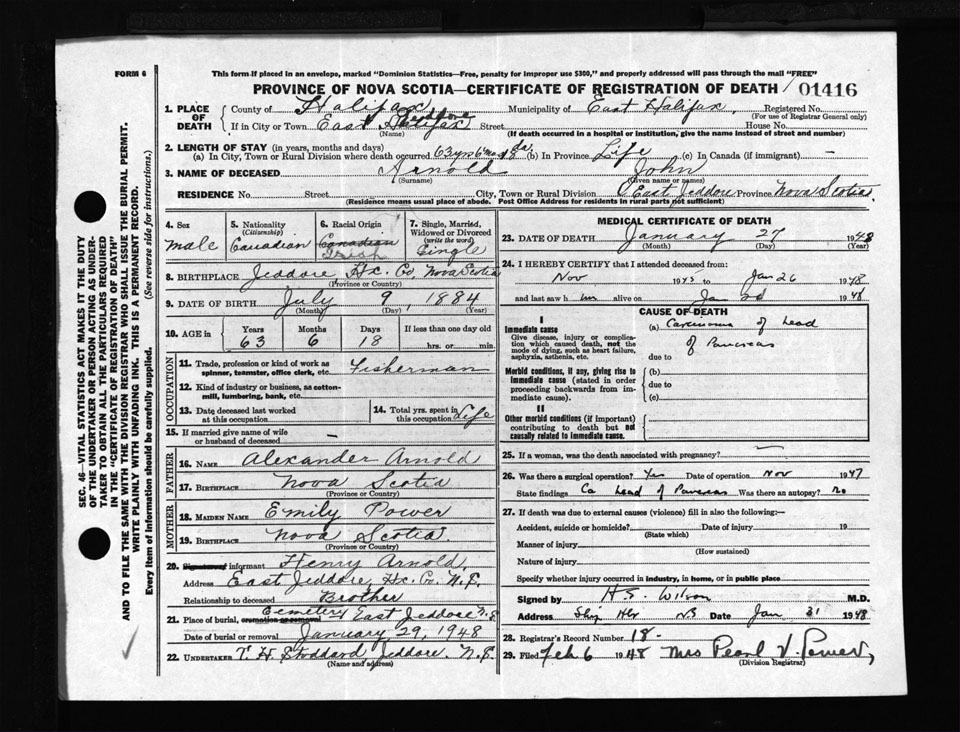 FORM 6
This form if placed in an envelope, marked "Dominion Statistics—Free, penalty for improper use $300," and properly addressed will pass through the mail "FREE"
PROVINCE OF NOVA SCOTIA—CERTIFICATE OF REGISTRATION OF DEATH
01416
1. PLACE OF DEATH
County of Halifax Municipality of East Halifax Registered No.
(For use of Registrar General only)
If in City or Town East Halifax Jeddore Street House No.
(Name) (If death occurred in a hospital or institution, give the name instead of street and number)
2. LENGTH OF STAY (in years, months and days)
(a) In City, Town or Rural Division where death occurred 63 yrs 6 mo 18 da (b) In Province Life (c) In Canada (if immigrant) —
3. NAME OF DECEASED Arnold John
(Surname) (Given name or names)
RESIDENCE No. Street City, Town or Rural Division East Jeddore Province Nova Scotia
(Residence means usual place of abode. Post Office Address for residents in rural parts not sufficient)
4. Sex
male
5. Nationality
(Citizenship)
Canadian
6. Racial Origin
Canadian
Irish
7. Single, Married, Widowed or Divorced
(write the word)
Single
8. BIRTHPLACE Jeddore Hx. Co, Nova Scotia
(Province or Country)
9. DATE OF BIRTH July 9, 1884
(Month) (Day) (Year)
10. AGE in Years Months Days If less than one day old
63 6 18 hrs. or min.
OCCUPATION
11. Trade, profession or kind of work as spinner, teamster, office clerk, etc. Fisherman
12. Kind of industry or business, as cotton-mill, lumbering, bank, etc.
13. Date deceased last worked at this occupation
14. Total yrs. spent in this occupation Life
15. If married give name of wife or husband of deceased —
FATHER
16. NAME Alexander Arnold
17. BIRTHPLACE Nova Scotia
(Province or Country)
MOTHER
18. MAIDEN NAME Emily Power
19. BIRTHPLACE Nova Scotia.
(Province or Country)
20. Signature of informant Henry Arnold,
Address East Jeddore, Hx. Co. N.S.
Relationship to deceased Brother
21. Place of burial, cremation or removal Cemetery East Jeddore N.S
Date of burial or removal January 29, 1948
22. UNDERTAKER T. H. Stoddard Jeddore. N.S.
(Name and address)
MEDICAL CERTIFICATE OF DEATH
23. DATE OF DEATH January 27 1948
(Month) (Day) (Year)
24. I HEREBY CERTIFY that I attended deceased from:
Nov 19 to Jan 26 1948
and last saw h im alive on Jan 1948
CAUSE OF DEATH
I
Immediate cause
Give disease, injury or complication which caused death, not the mode of dying, such as heart failure, asphyxia, asthenia, etc.
(a) Carcinoma of head
of Pancreas
due to
Morbid conditions, if any, giving rise to immediate cause (stated in order proceeding backwards from immediate cause).
(b)
due to
(c)
II
Other morbid conditions (if important) contributing to death but not causally related to immediate cause.
25. If a woman, was the death associated with pregnancy?
26. Was there a surgical operation? Yes Date of operation Nov 1947
State findings Ca head of Pancreas Was there an autopsy? no
27. If death was due to external causes (violence) fill in also the following:—
Accident, suicide or homicide? Date of injury 19
(State which)
Manner of injury
(How sustained)
Nature of injury
Specify whether injury occurred in industry, in home, or in public place
Signed by H.S. Wilson M.D.
Address Ship Hbr Date Jan 31 1948
28. Registrar's Record Number 18.
29. Filed Feb 6 1948 Mrs Pearl V. Power,
(Division Registrar)
SEC. 46—VITAL STATISTICS ACT MAKES IT THE DUTY
OF THE UNDERTAKER OR PERSON ACTING AS UNDER-
TAKER TO OBTAIN ALL THE PARTICULARS REQUIRED
IN THE "CERTIFICATE OF REGISTRATION OF DEATH"
AND TO FILE THE SAME WITH THE DIVISION REGISTRAR WHO SHALL ISSUE THE BURIAL PERMIT.
WRITE PLAINLY WITH UNFADING INK. THIS IS A PERMANENT RECORD.
Every item of information should be carefully supplied. (See reverse side for instructions.)